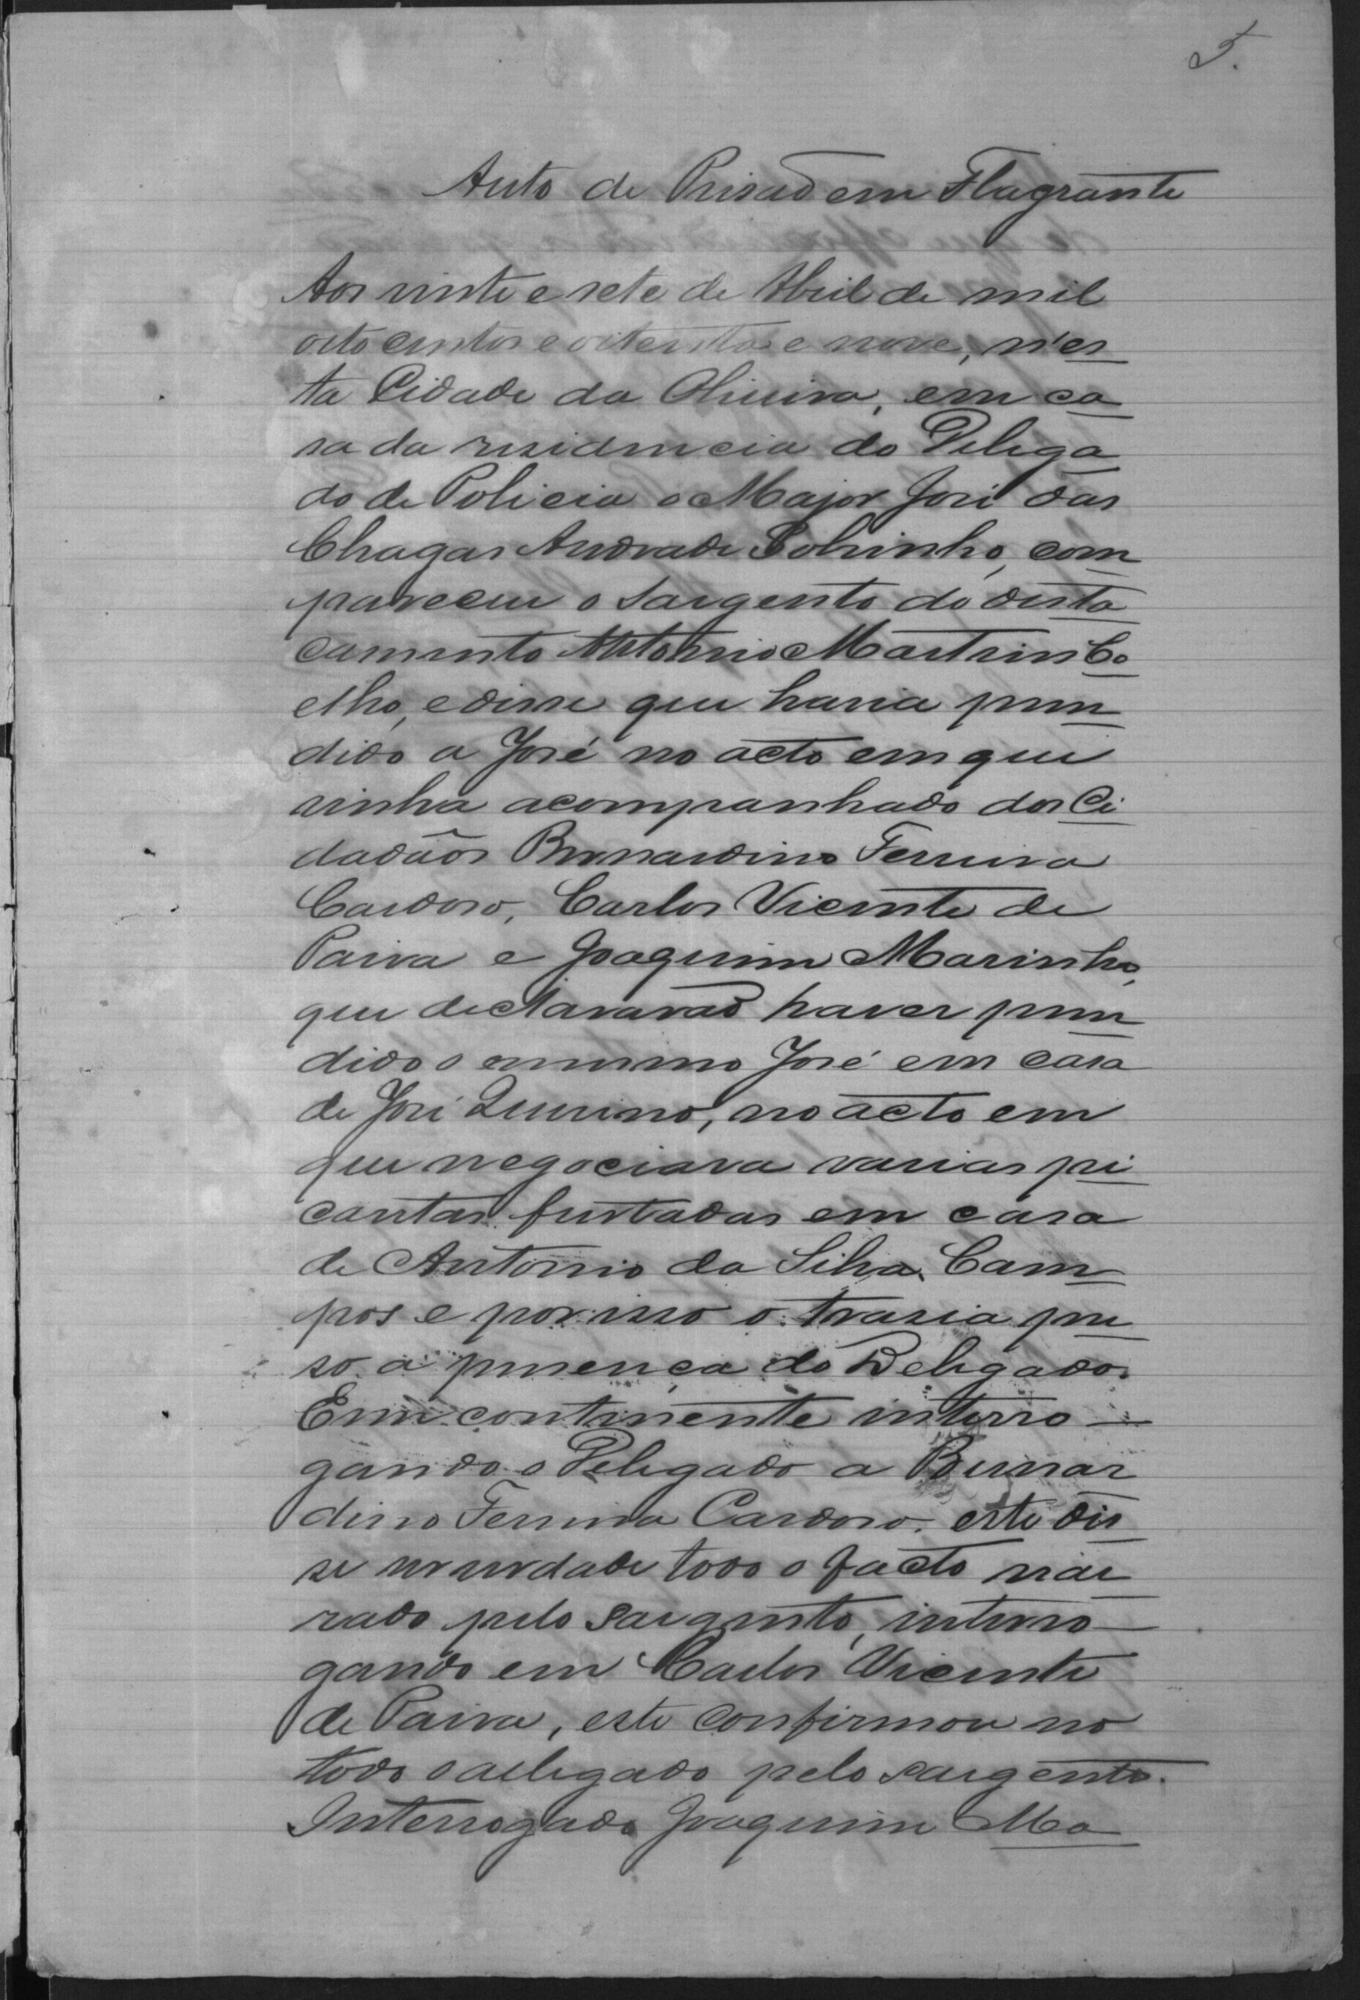 5.
Auto de Prisaõ em Flagrante
Aos vinte e sete de Abril de mil
oito centos e oitenta e nove, n'es
ta Cidade da Oliveira, em ca
sa da residencia do Delega
do de Policia o Major José das
Chagas Andrade Sobrinho, com
pareceu o Sargento do desta
camento Antonio Martins Co
elho, e disse que havia pren
dido a José no acto em que
vinha acompanhado dos Ci
dadãos Bernardino Ferreira
Cardoso, Carlos Vicente de
Paiva e Joaquim Marinho,
que declararaõ haver pren
dido o mesmo José em casa
de José Quirino, no acto em
que negociava varias pi
cantas furtadas em casa
de Antonio da Silva Cam
pos e por isso o trasia pre
so a presença do Delegado.
Em continente interro
gando o Delegado a Bernar
dino Ferreira Cardoso, este dis
se ser verdade todo o facto nar
rado pelo Sargento, interro
gando em Carlos Vicente
de Paiva, este confirmou no
todo o allegado pelo sargento.
Interrogado Joaquim Ma